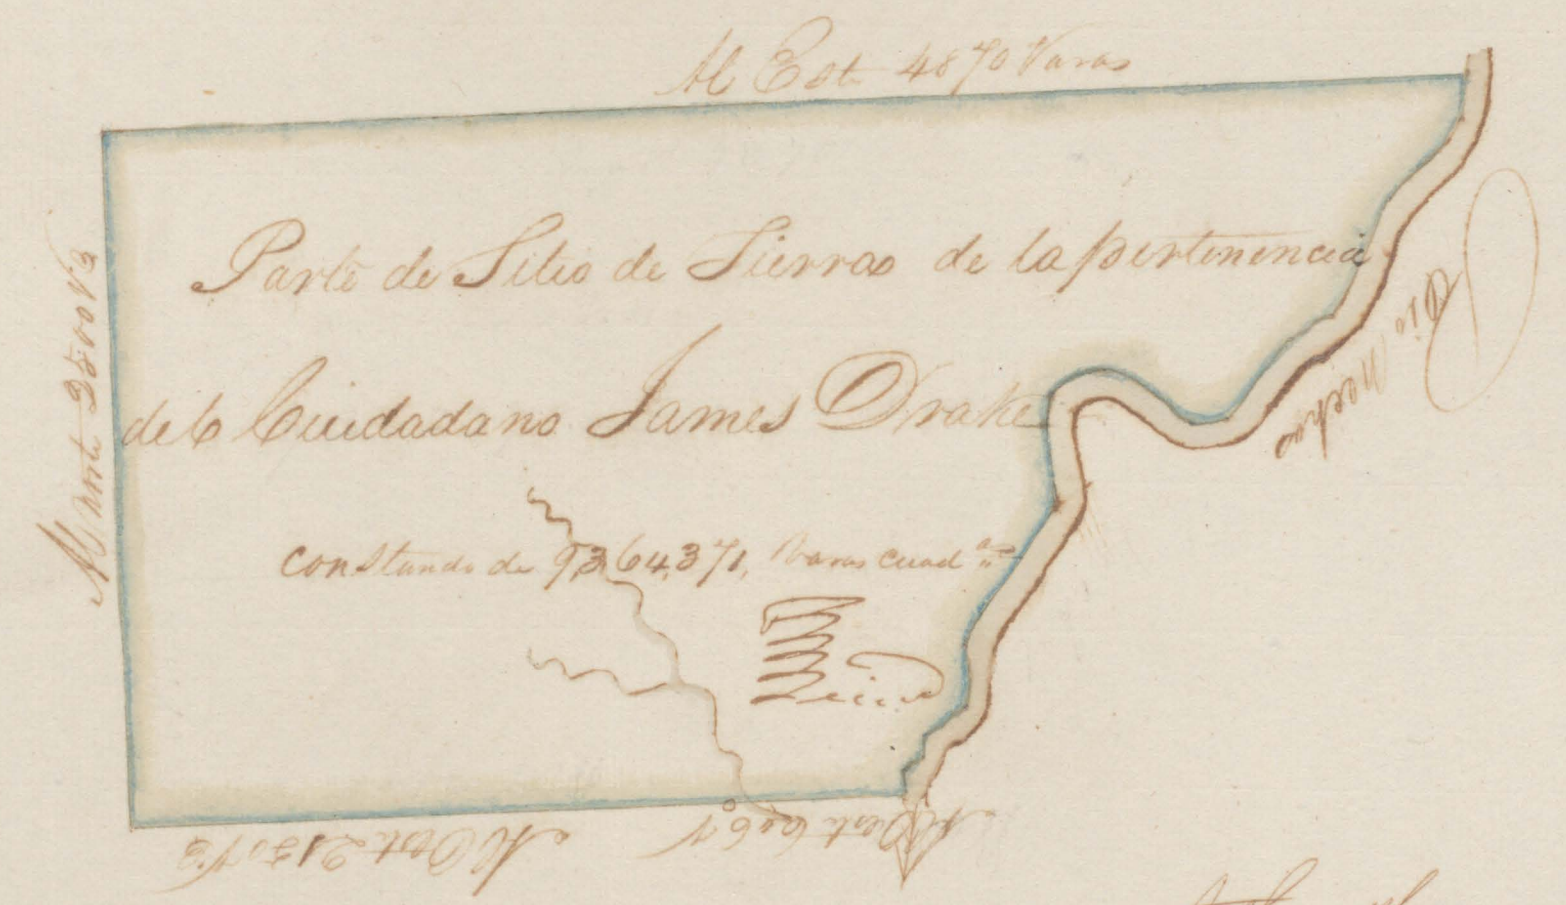 Al Este 4870 Varas
Al norte 2500 Vs
Parte de Sitio de Tierras de la pertenencia
del Ciudadano James Drake
constando de 9,364,371, Varas cuadas
Rio Neches
Al Oeste
Al Oeste